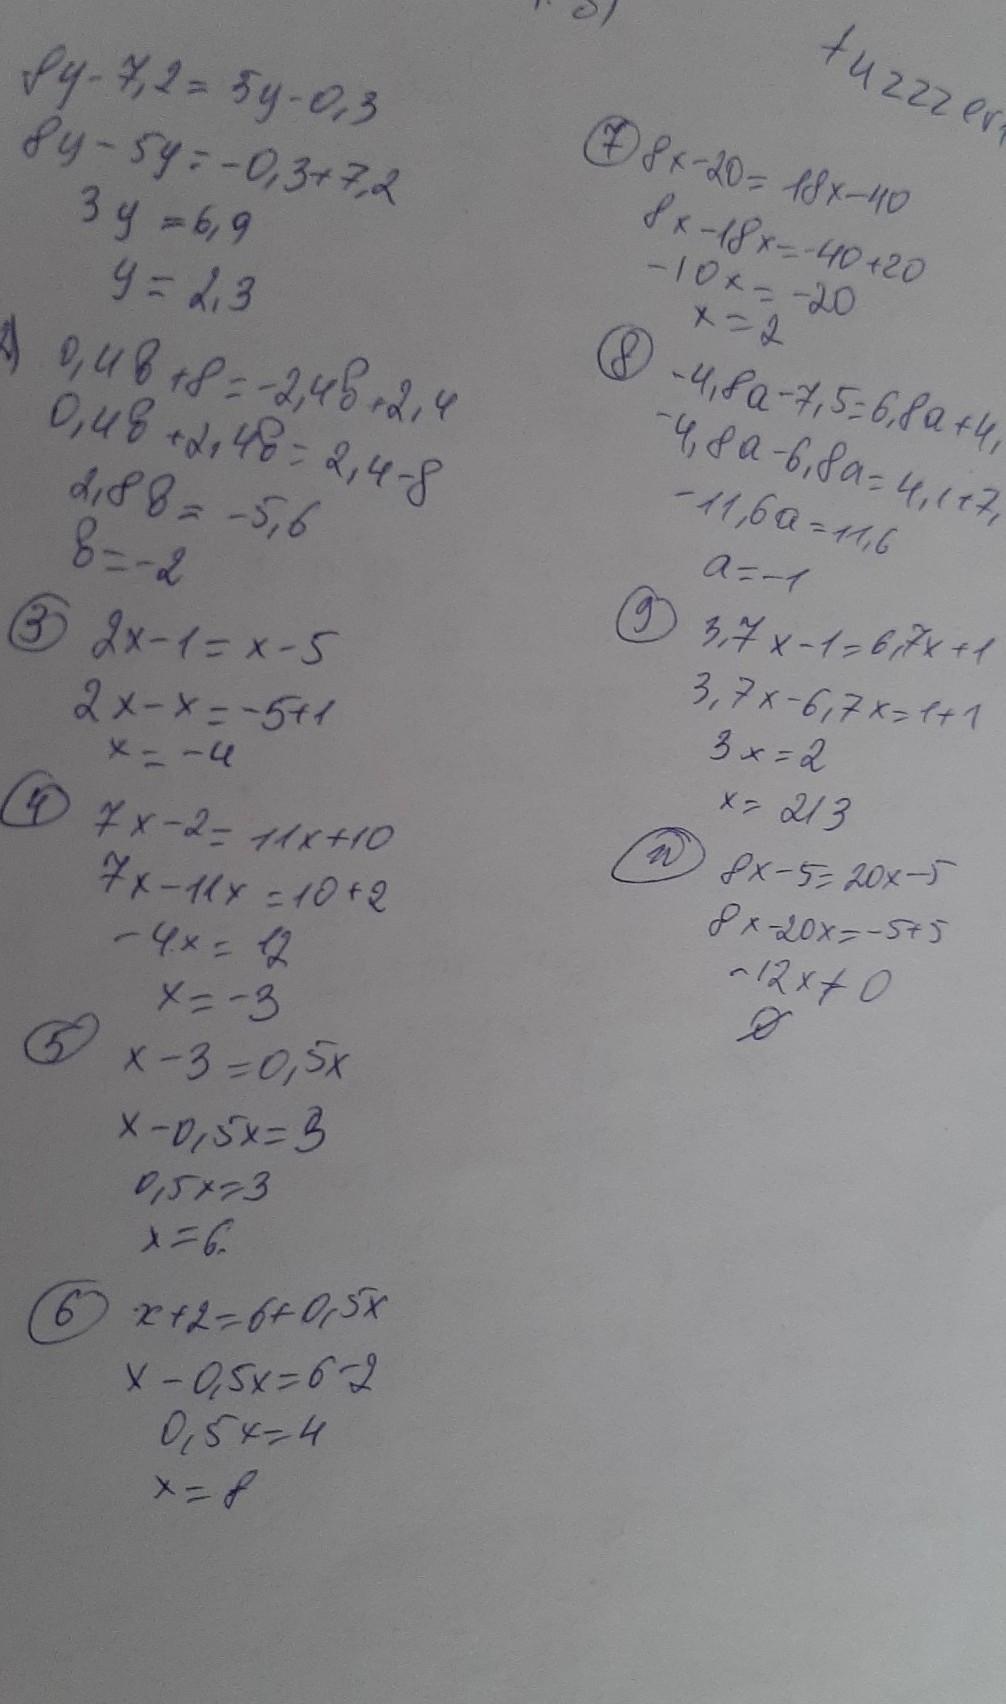 8y-7,2=5y-0,3
8y-5y=-0,3+7,2
3y=6,9
y=2,3
2)
0,4в+8=-2,4в+2,4
0,4в+2,4в=2,4-8
2,8в=-5,6
в=-2
3 2x-1=x-5
2x-x=-5+1
x=-4
4 7x-2=11x+10
7x-11x=10+2
-4x=12
x=-3
5 x-3=0,5x
x-0,5x=3
0,5x=3
x=6.
6 x+2=6+0,5x
x-0,5x=6-2
0,5x=4
x=8
7 8x-20=18x-40
8x-18x=-40+20
-10x=-20
x=2
8 -4,8a-7,5=6,8a+4,
-4,8a-6,8a=4,1+7,
-11,6a=11,6
a=-1
9 3,7x-1=6,7x+1
3,7x-6,7x=1+1
3x=2
x=2/3
8x-5=20x-5
8x-20x=-5+5
-12x≠0
∅